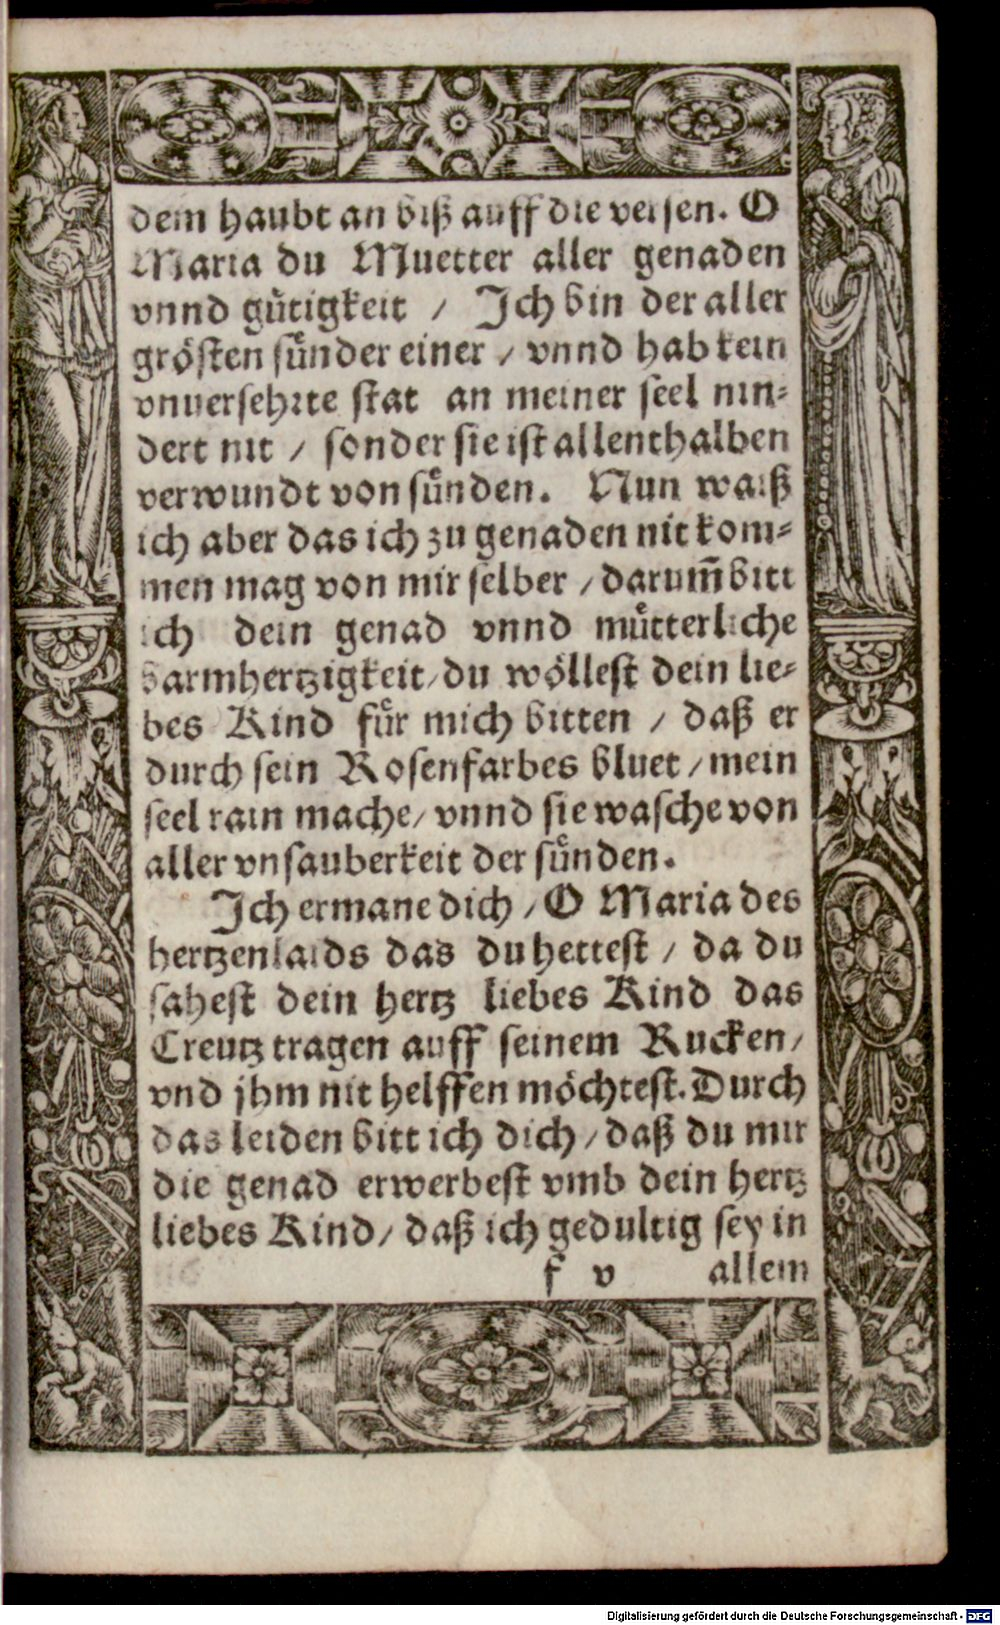 dem haubt an biß auff die versen. O
Maria du Muetter aller genaden
vnnd gütigkeit / Ich bin der aller
grösten sünder einer / vnnd hab kein
vnuersehrte stat an meiner seel nin-
dert nit / sonder sie ist allenthalben
verwundt von sünden. Nun waiß
ich aber das ich zu genaden nit kom-
men mag von mir selber / darum̃ bitt
ich dein genad vnnd mütterliche
barmhertzigkeit / du wöllest dein lie-
bes Kind für mich bitten / daß er
durch sein Rosenfarbes bluet / mein
seel rain mache / vnnd sie wasche von
aller vnsauberkeit der sünden.
Ich ermane dich / O Maria des
hertzenlaids das du hettest / da du
sahest dein hertz liebes Kind das
Creutz tragen auff seinem Rucken /
vnd jhm nit helffen möchtest. Durch
das leiden bitt ich dich / daß du mir
die genad erwerbest vmb dein hertz
liebes Kind / daß ich gedultig sey in
f v allem
Digitalisierung gefördert durch die Deutsche Forschungsgemeinschaft - DFG